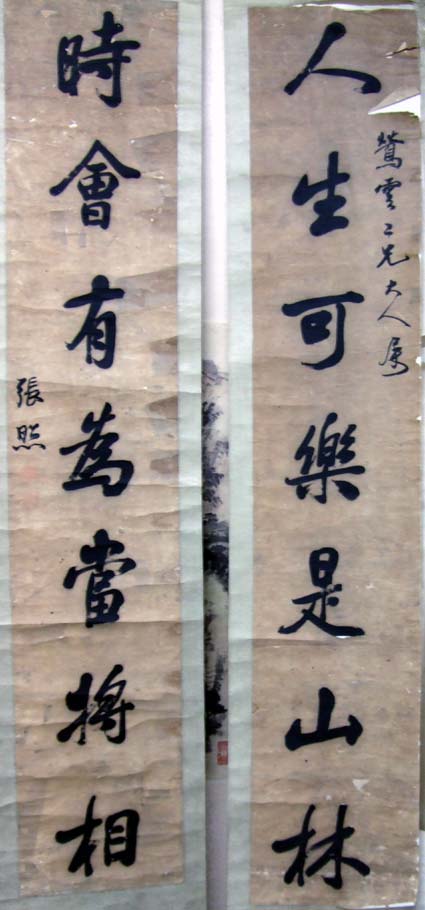 人生可樂是山林
鶯雲二兄大人属
時會有為當將相
張照